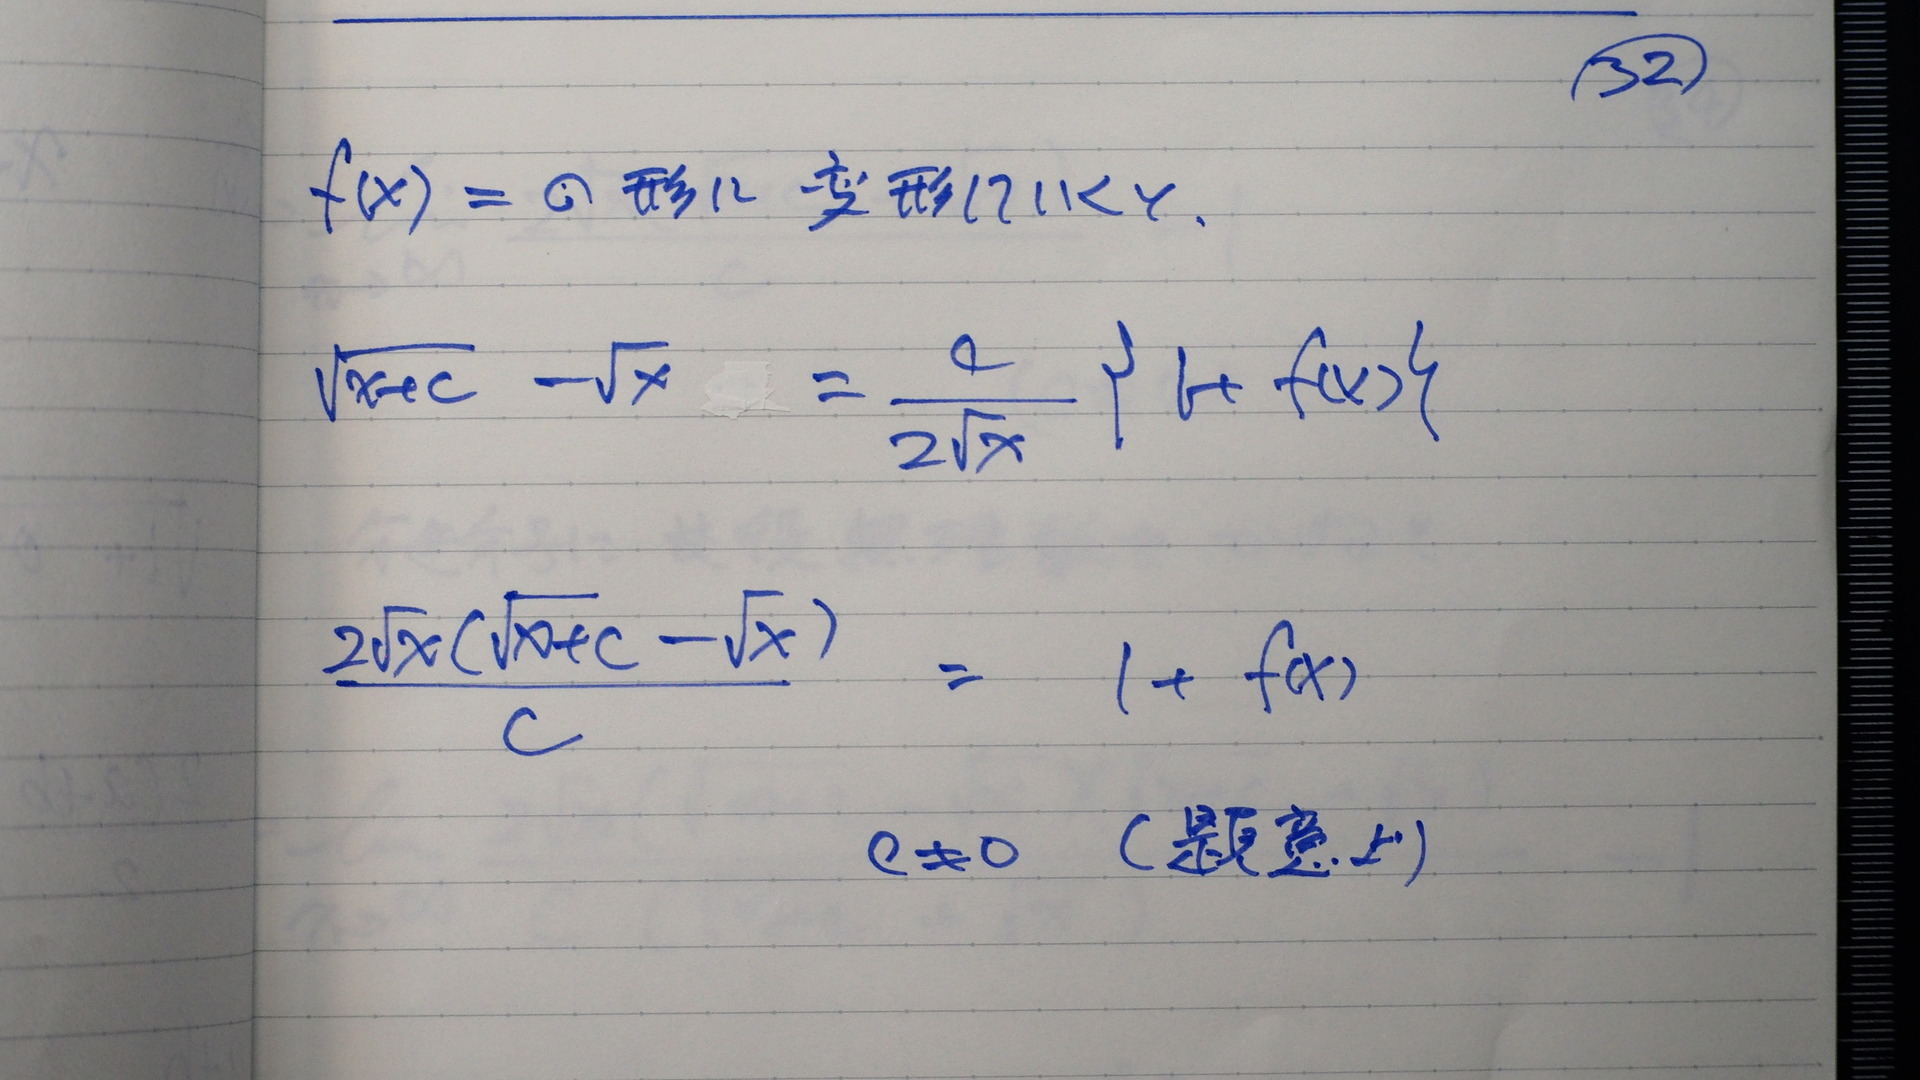 (32)
f(x) = の形に変形していくと、
√(x+c) - √x = c/(2√x) {1 + f(x)}
2√x(√(x+c) - √x)/c = 1 + f(x)
c≠0 (題意より)